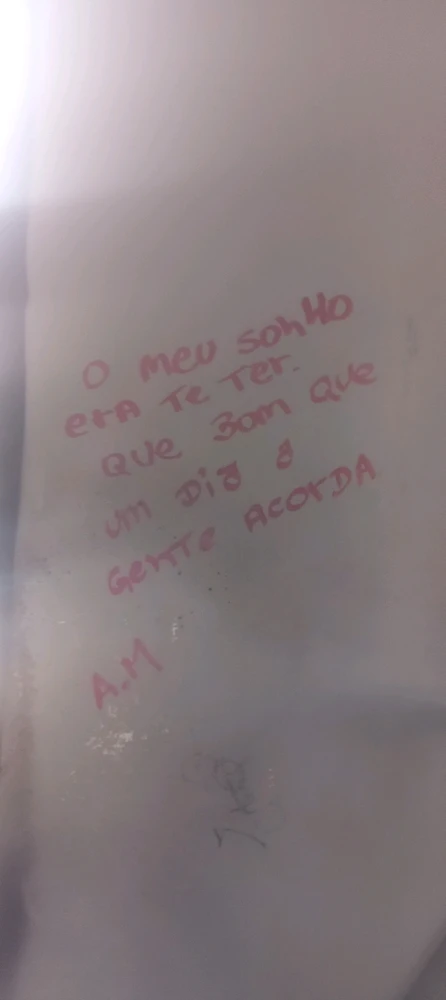 O meu sonHo
erA Te Ter.
Que Bom Que
um Dia a
Gente AcorDA
A.M